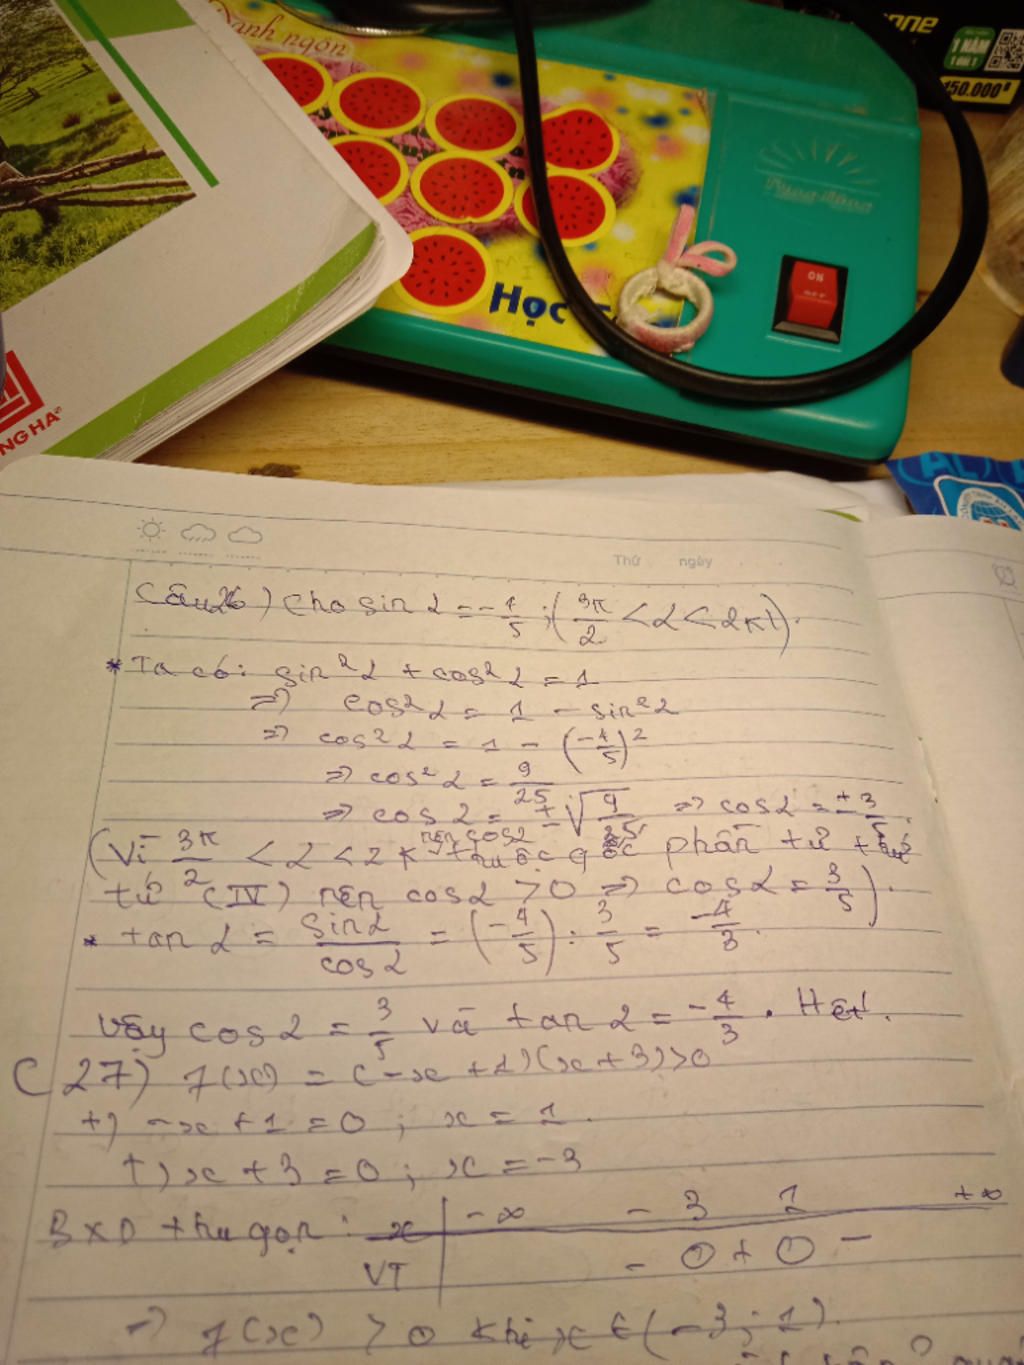 Danh ngôn
one
1 NĂM
150.000đ
Rạng Đông
ON
OFF
Học
NG HA
Thứ ngày
Câu 26) Cho sin α = -4/5 ; (3π/2 < α < 2π).
* Ta có: sin²α + cos²α = 1
=> cos²α = 1 - sin²α
=> cos²α = 1 - (-4/5)²
=> cos²α = 9/25
=> cos α = ±√9/25 => cos α = ±3/5.
(Vì 3π/2 < α < 2π nên cos α thuộc góc phần tư thứ
tư (IV) nên cos α > 0 => cos α = 3/5).
* tan α = sin α/cos α = (-4/5) : 3/5 = -4/3.
Vậy cos α = 3/5 và tan α = -4/3. Hết.
C 27) f(x) = (-x + 1)(x + 3) > 0
+) -x + 1 = 0 ; x = 1.
+) x + 3 = 0 ; x = -3
BXD thu gọn: x | -∞ -3 1 +∞
VT | - 0 + 0 -
=> f(x) > 0 khi x ∈ (-3 ; 1).